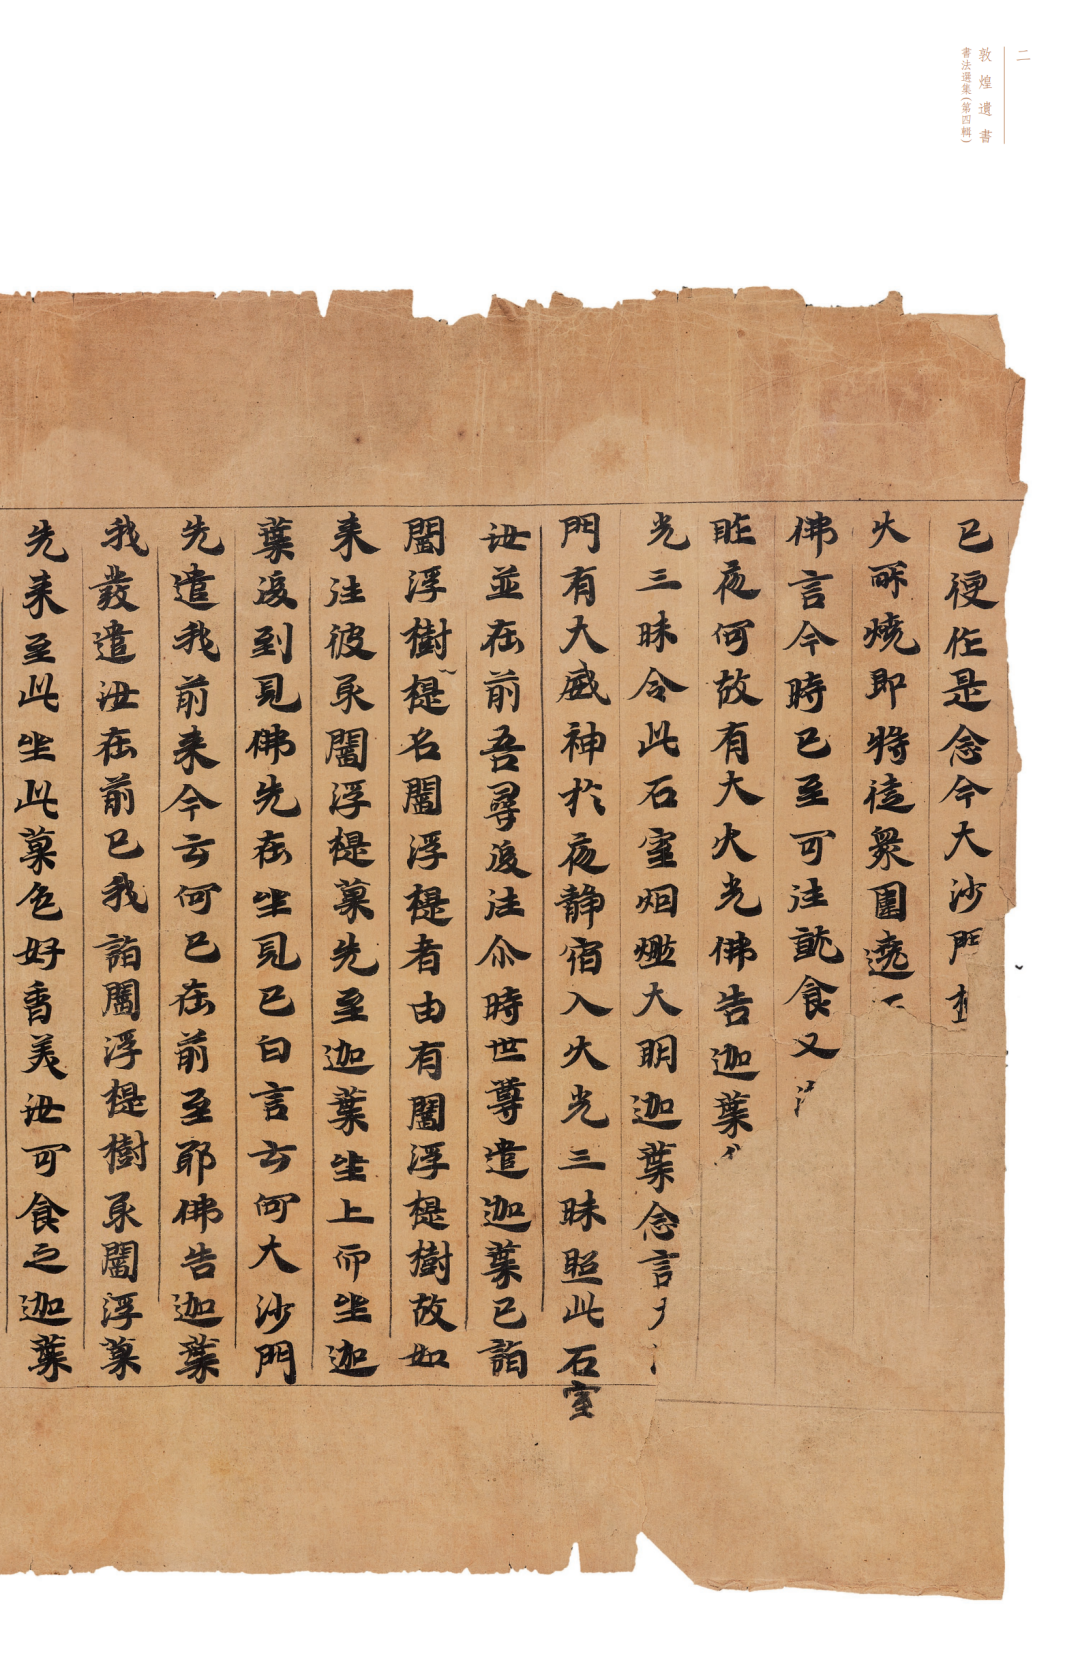 二
敦煌遺書
書法選集(第四輯)
已復作是念今大沙門
火所燒即將徒眾圍遶
佛言今時已至可往就食又
昨夜何故有大火光佛告迦葉
光三昧令此石室烟爓大明迦葉念言
門有大威神於夜静宿入火光三昧照此石室
汝並在前吾尋後往尒時世尊遣迦葉已詣
閻浮樹提名閻浮提者由有閻浮提樹故如
来往彼取閻浮提菓先至迦葉坐上而坐迦
葉後到見佛先在坐見已白言云何大沙門
先遣我前来今云何已在前至耶佛告迦葉
我發遣汝在前已我詣閻浮提樹取閻浮菓
先来至此坐此菓色好香美汝可食之迦葉